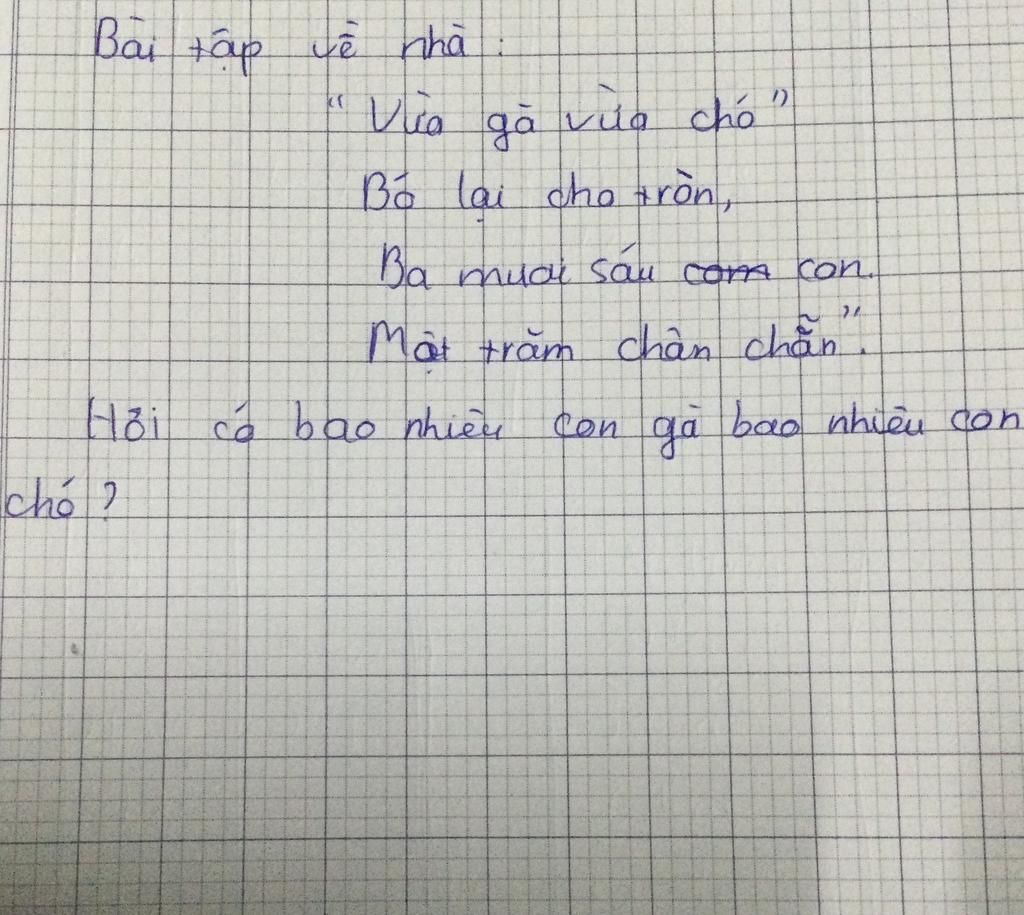 Bài tập về nhà:
"Vừa gà vừa chó"
Bó lại cho tròn,
Ba mươi sáu com con.
Một trăm chân chẵn".
Hỏi có bao nhiêu con gà bao nhiêu con
chó?